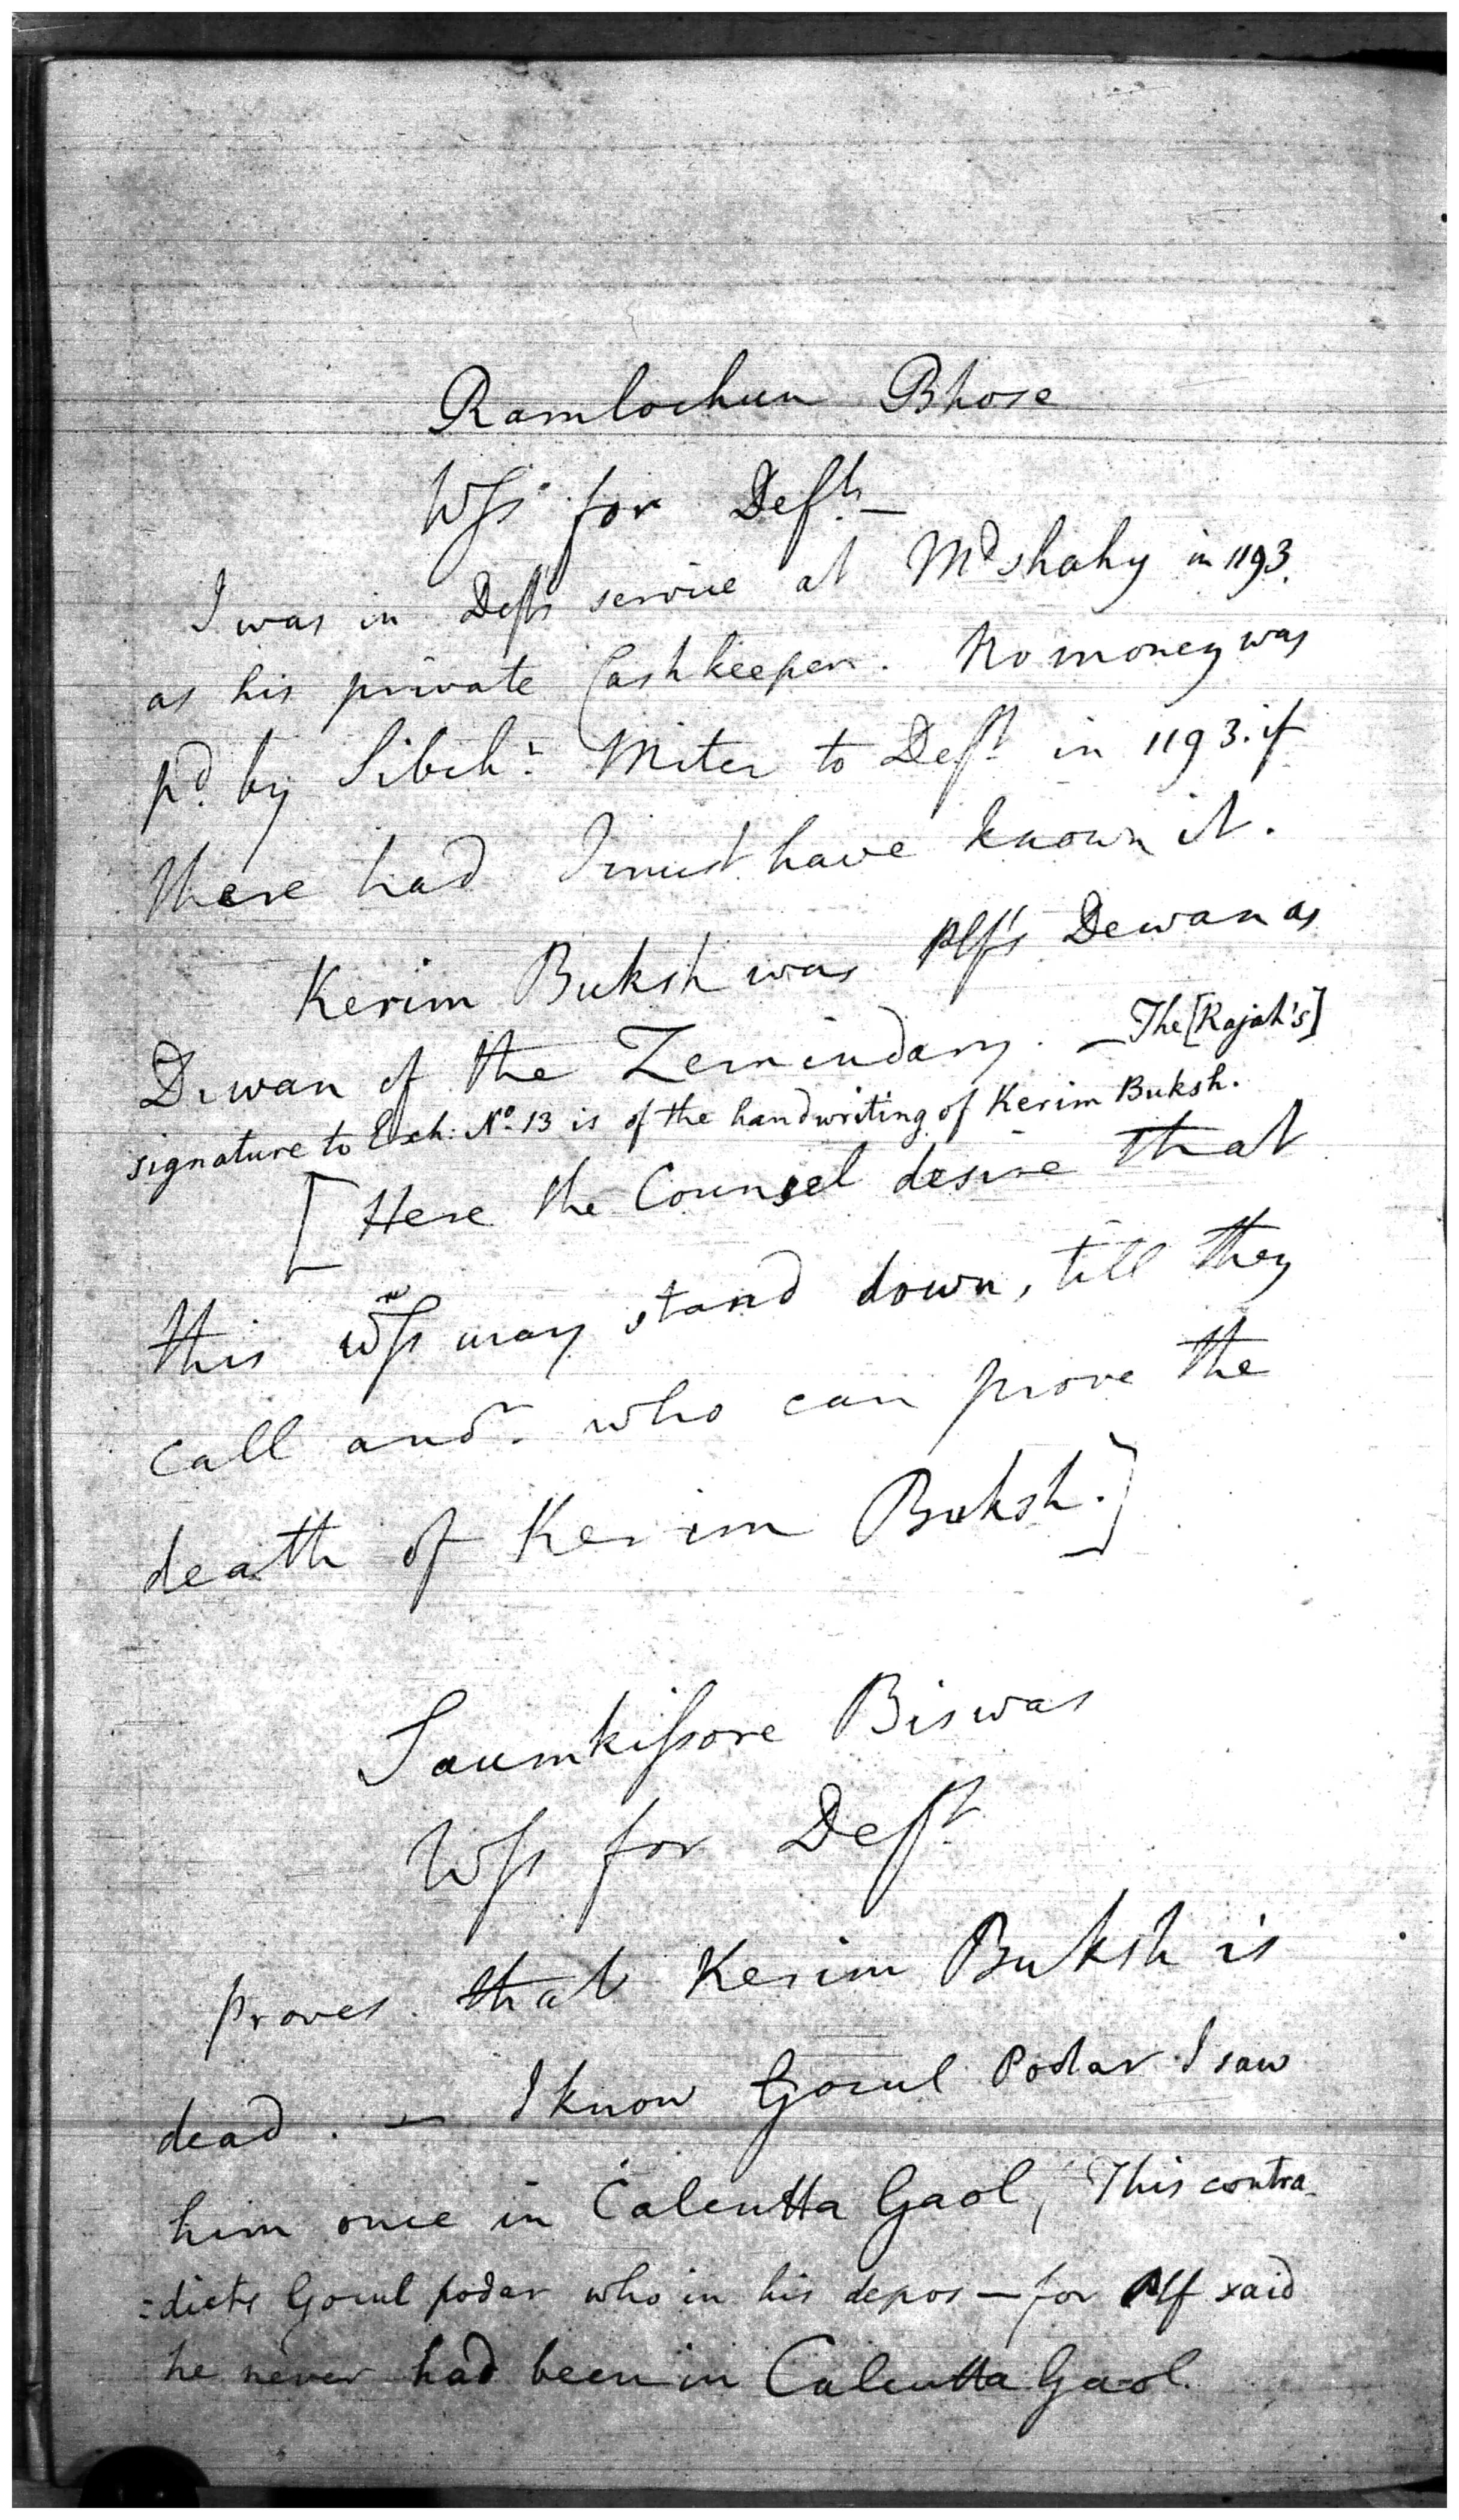 Ramlochun Bhose
Wss for Deft. —
I was in Deft's service at Md shahy in 1193.
as his private Cashkeeper. No money was
pd. by Sibchn. Miter to Deft. in 1193. if
there had I must have known it.
Kerim Buksh was Plf's Dewan as
Dewan of the Zemindary. — The [Rajah's]
signature to Exh: No. 13 is of the handwriting of Kerim Buksh.
[Here the Counsel desire that
this Wss may stand down, till they
call anor. who can prove the
death of Kerim Buksh.]
Saumkissore Biswas
Wss for Deft
proves that Kerim Buksh is
dead. — I know Gocul Podar I saw
him once in Calcutta Gaol, This contra-
=dicts Gocul podar who in his depos — for Plf said
he never had been in Calcutta Gaol.